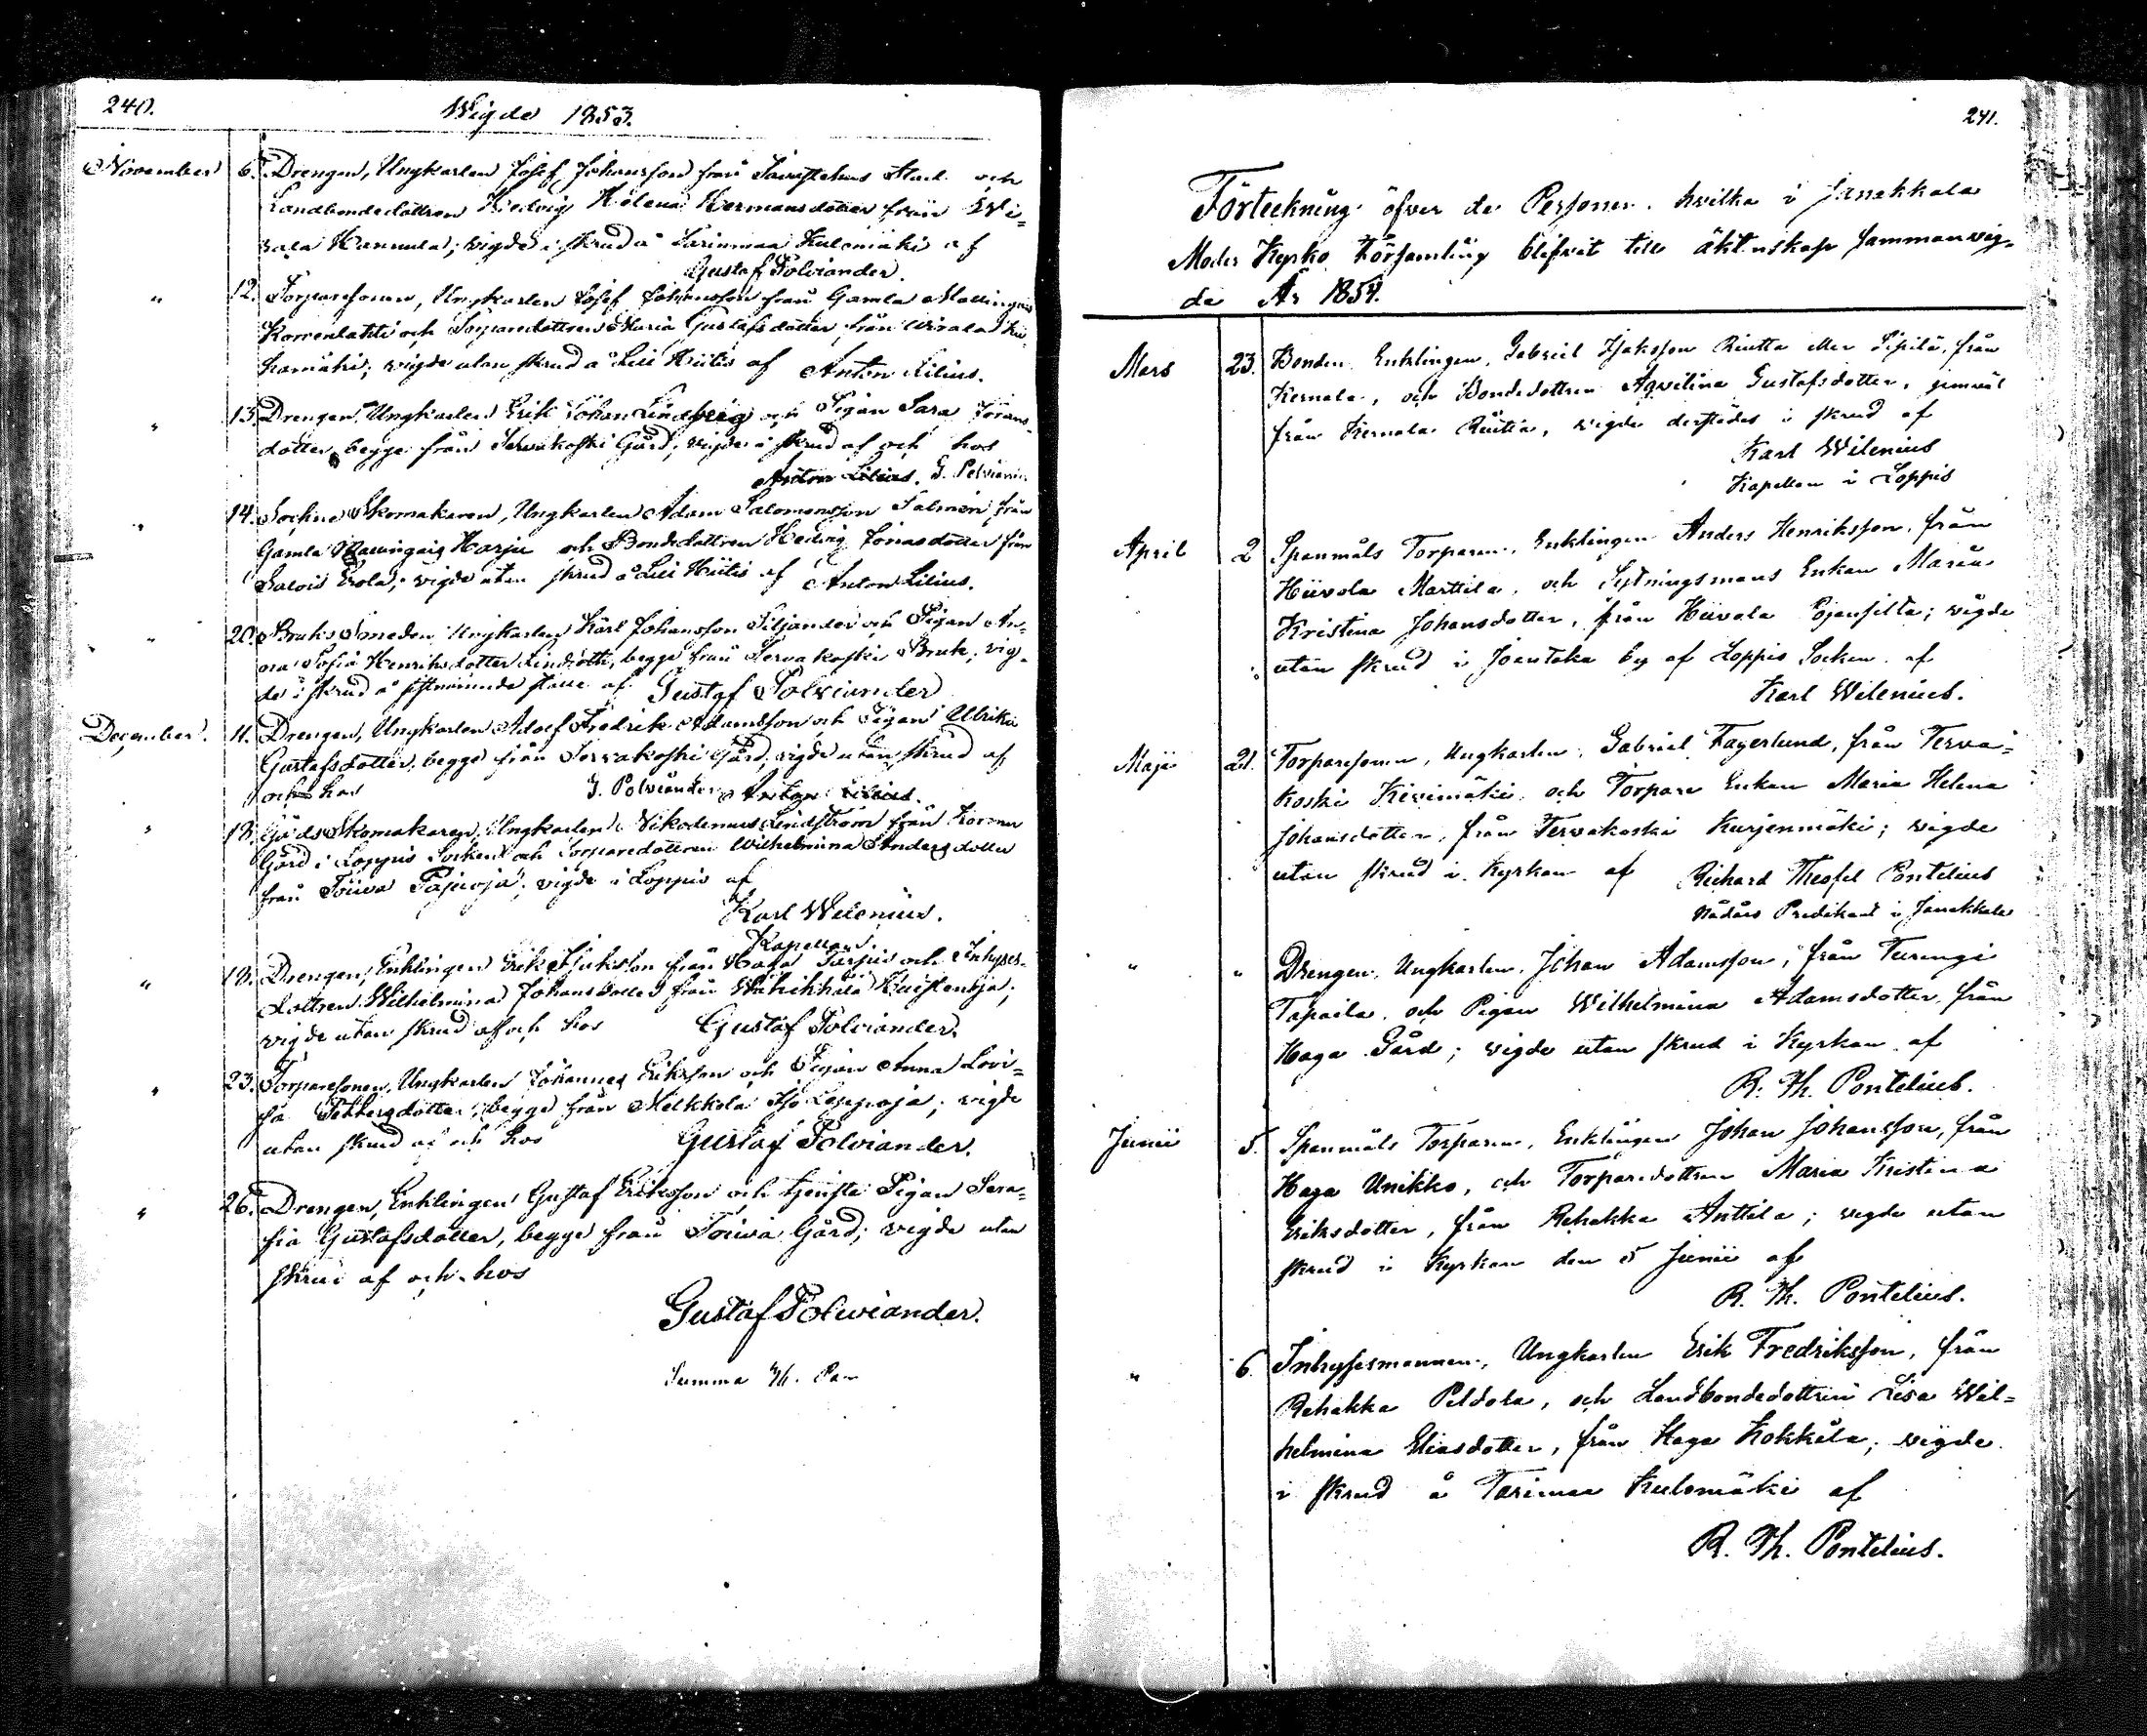 240.
Wigde 1853.
November 6. Drengen, Ungkarlen Josef Johansson från Tavastehus Stad och
Landbondedottren Hedvig Helena Hermansdotter från Wi=
rala Hannula; vigde i skrud å Tarinmaa Kulomäki af
Gustaf Polviander.
" 12. Torparesonen, Ungkarlen Josef Johansson från Gamla Mallingais
Korrenlahti och Torparedottren Maria Gustafsdotter, från Wirala
hamäki; vigde utan skrud å Lill Hiitis af Anton Lilius.
" 13. Drengen, Ungkarlen Erik Johan Lindberg och Pigan Sara Johans=
dotter, begge från Tervakoski Gård, vigde i skrud af och hos
Anton Lilius. G. Polviander
" 14. Sockne Skomakaren, Ungkarlen Adam Salomonsson Salmén från
Gamla Mallingais Harju och Bondedottren Hedvig Jonasdotter från
Salois Erola; vigde utan skrud å Lill Hiitis af Anton Lilius.
" 20. Bruks Smeden Ungkarlen Karl Johansson Siljander och Pigan An=
na Sofia Henriksdotter Lindroth, begge från Tervakoski Bruk; vig=
de i skrud å sistnämnde ställe af Gustaf Polviander
December. 11. Drengen, Ungkarlen Adolf Fredrik Adamsson och Pigan Ulrika
Gustafsdotter, begge från Tervakoski Gård, vigde utan skrud af
och hos G. Polviander Anton Lilius.
" 18. Gårds Skomakaren, Ungkarlen Nikodemus Lindström från Kormu
Gård i Loppis Socken och Torparedottren Wilhelmina Andersdotter
från Toiwa Pajuoja; vigde i Loppis af
Karl Wilenius.
Kapellan.
" 18. Drengen, Enklingen Erik Isaksson från Haga Tarpis och Inhyses=
dottren Wilhelmina Johansdotter från Wähikkälä
vigde utan skrud af och hos Gustaf Polviander.
" 23. Torparesonen, Ungkarlen Johannes Eriksson och Pigan Anna Lovi=
sa dotter, begge från Melkkola Iso Leppoja; vigde
utan skrud af och hos Gustaf Polviander.
" 26. Drengen, Enklingen Gustaf Eriksson och tjenste Pigan Sera=
fia Gustafsdotter, begge från Toiwa Gård; vigde utan
skrud af och hos
Gustaf Polviander.
Summa Par
241.
Förteckning öfver de Personer, hvilka i Janakkala
Moder Kyrko Församling blifvit till äktenskap sammanvig=
de År 1854.
Mars 23. Bonden Enklingen, Gabriel Isaksson Riutta eller Sipilä, från
Kernala, och Bondedottren Aqvilina Gustafsdotter, jemväl
från Kernala Riutta, vigde derstädes i skrud af
Karl Wilenius
Kapellan i Loppis
April 2 Spanmåls Torparen, Enklingen Anders Henriksson, från
Hiivola Marttila, och Sytningsmans Enkan Maria
Kristina Johansdotter, från Hiivola Ojansilta; vigde
utan skrud i Joentaka by af Loppis Socken af
Karl Wilenius.
Maji 21. Torparesonen, Ungkarlen, Gabriel Fagerlund, från Terva=
koski Kivimäki och Torpare Enkan Maria Helena
Johansdotter, från Tervakoski Kurjenmäki; vigde
utan skrud i Kyrkan af Richard Theofil Pontelius
Nådårs Predikant i Janakkala
" " Drengen, Ungkarlen, Johan Adamsson, från Turengi
Tapaila, och Pigan Wilhelmina Adamsdotter, från
Haga Gård; vigde utan skrud i Kyrkan af
R. Th. Pontelius.
Junii 5. Spanmåls Torparen, Enklingen Johan Johansson, från
Haga Unikko, och Torparedottren Maria Kristina
Eriksdotter, från Rehakka Anttila; vigde utan
skrud i Kyrkan den 5 Junii af
R. Th. Pontelius.
" 6 Inhysesmannen, Ungkarlen Erik Fredriksson, från
Rehakka Peldola, och Landbondedottren Lisa Wil=
helmina Eliasdotter, från Haga Kokkila; vigde
i skrud å Tarinmaa Kulomäki af
R. Th. Pontelius.